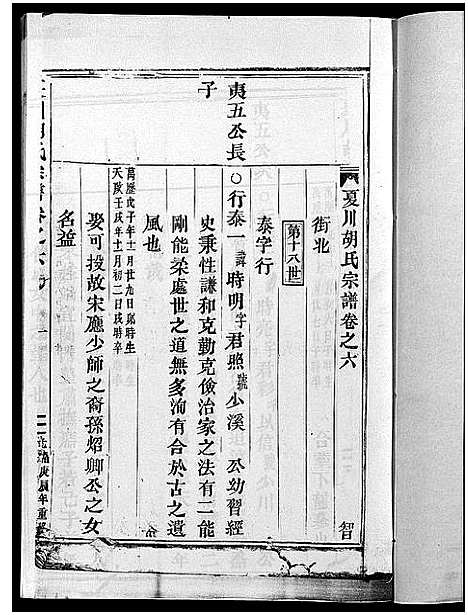 夏川胡氏宗譜卷之六 智
街北
第十八世
泰字行
夷五公長子
○行泰一諱時明字君照號少溪 公幼習經
史秉性謙和克勤克儉治家之法有二能
剛能柔處世之道無多洵有合於古之遺
風也
萬歷戊子年十一月廿九日卯時生
天啟壬戌年十二月初二日戌時卒
娶可投故宋應少師之裔孫炤卿公之女
名益
庚辰年重修